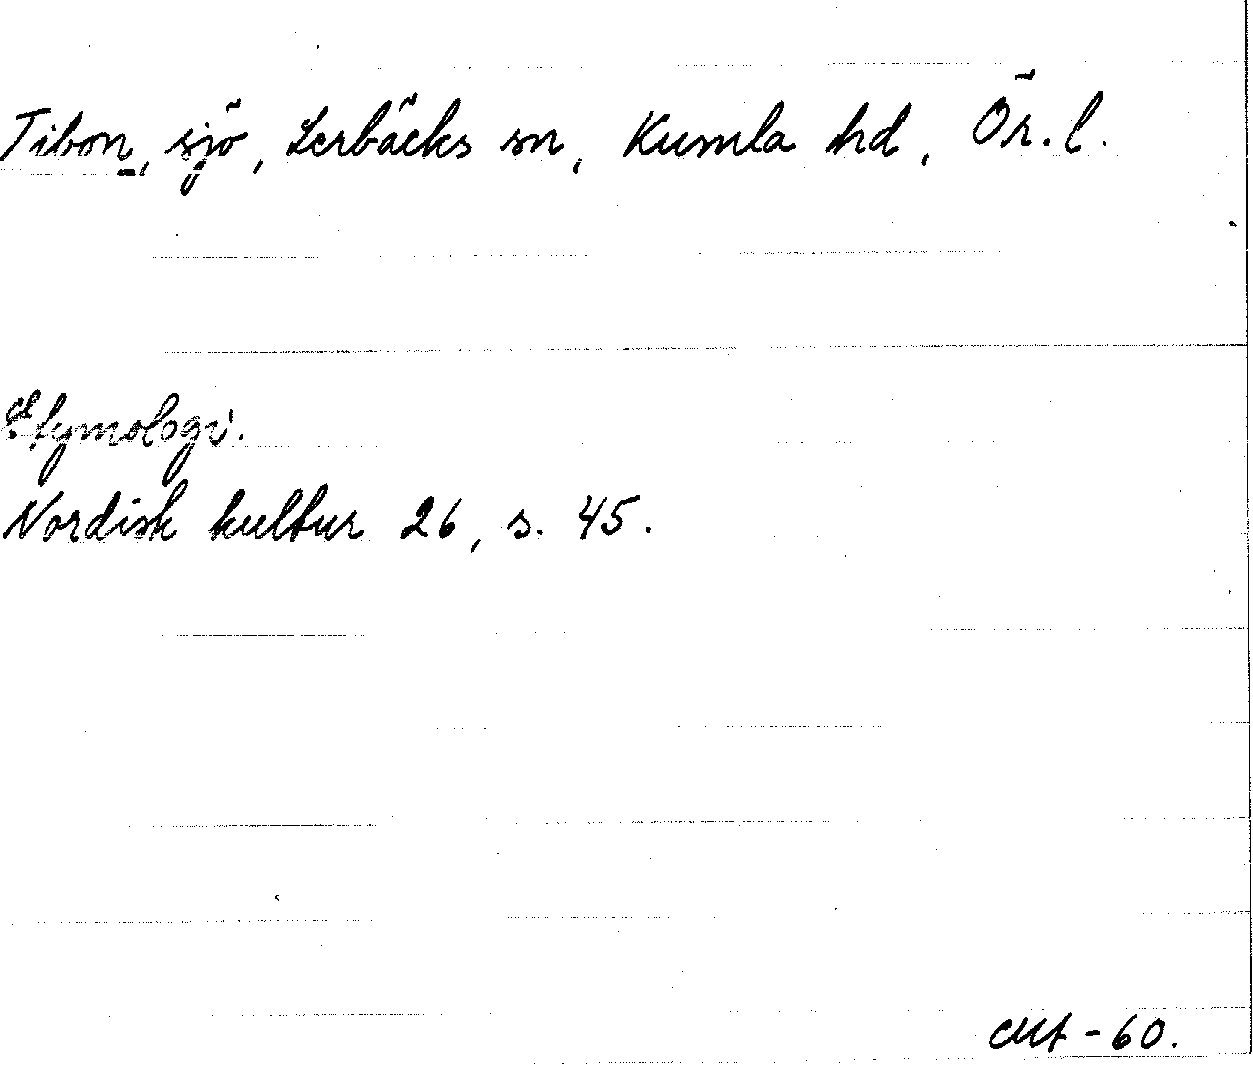 Tibon, sjö, Lerbäcks sn, Kumla hd, Ör. l.
Etymologi.
Nordisk kultur 26, s. 45.
-60.